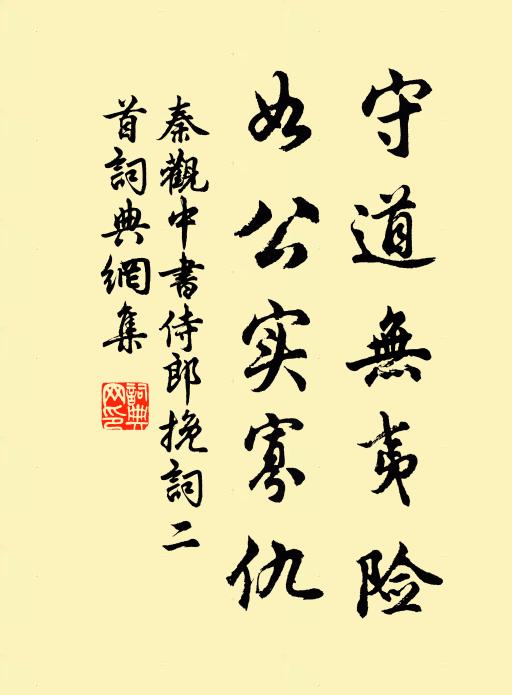 守道無夷险
如公实寡仇
秦觀中書侍郎挽詞二
首詞典網集
詞典
网印